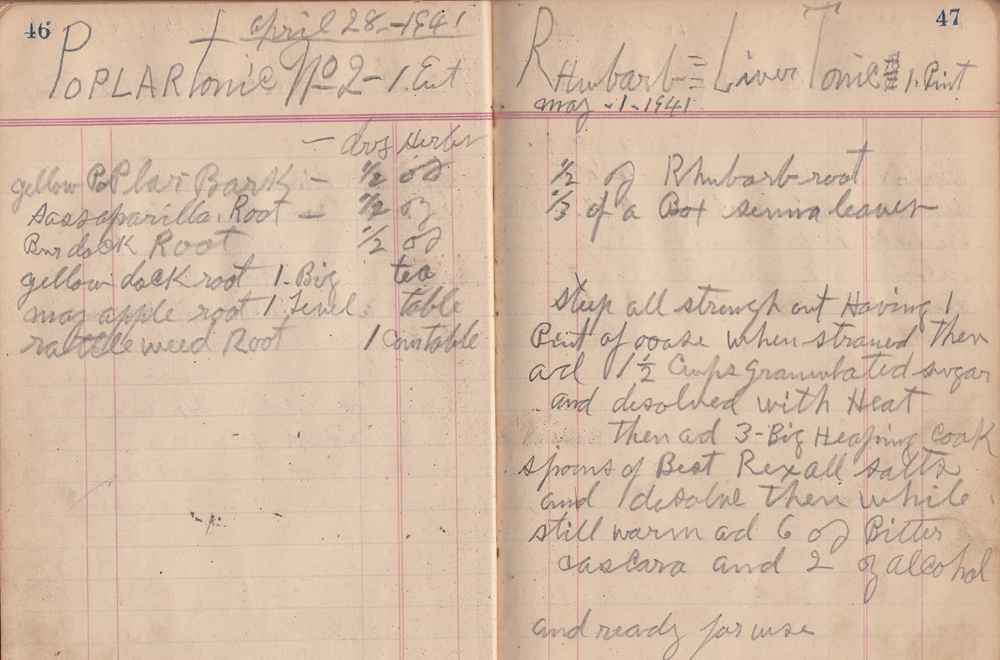 46
April 28-1941
PoPLAR Tonic No 2 - 1.
- dry Herbs
yellow PoPlar Bark - 1/2 oz
Sassaparilla Root - 1/2 oz
Burdock Root 1/2 oz
yellow dock root 1-Big tea
may apple root 1 Level table
rattle weed Root 1 table
47
Rhubarb = Liver Tonic 1. Pint
may -1-1941
1/2 oz Rhubarb root
1/3 of a Box senna leaves
Steep all strength out Having 1
Pint of ooase when strained then
ad 1 1/2 Cups Granulated sugar
and desolved with Heat
then ad 3-Big Heaping Cook
spoons of Best Rexall salts
and desolve then while
still warm ad 6 oz Bitter
cascara and 2 oz alcohol
and ready for use